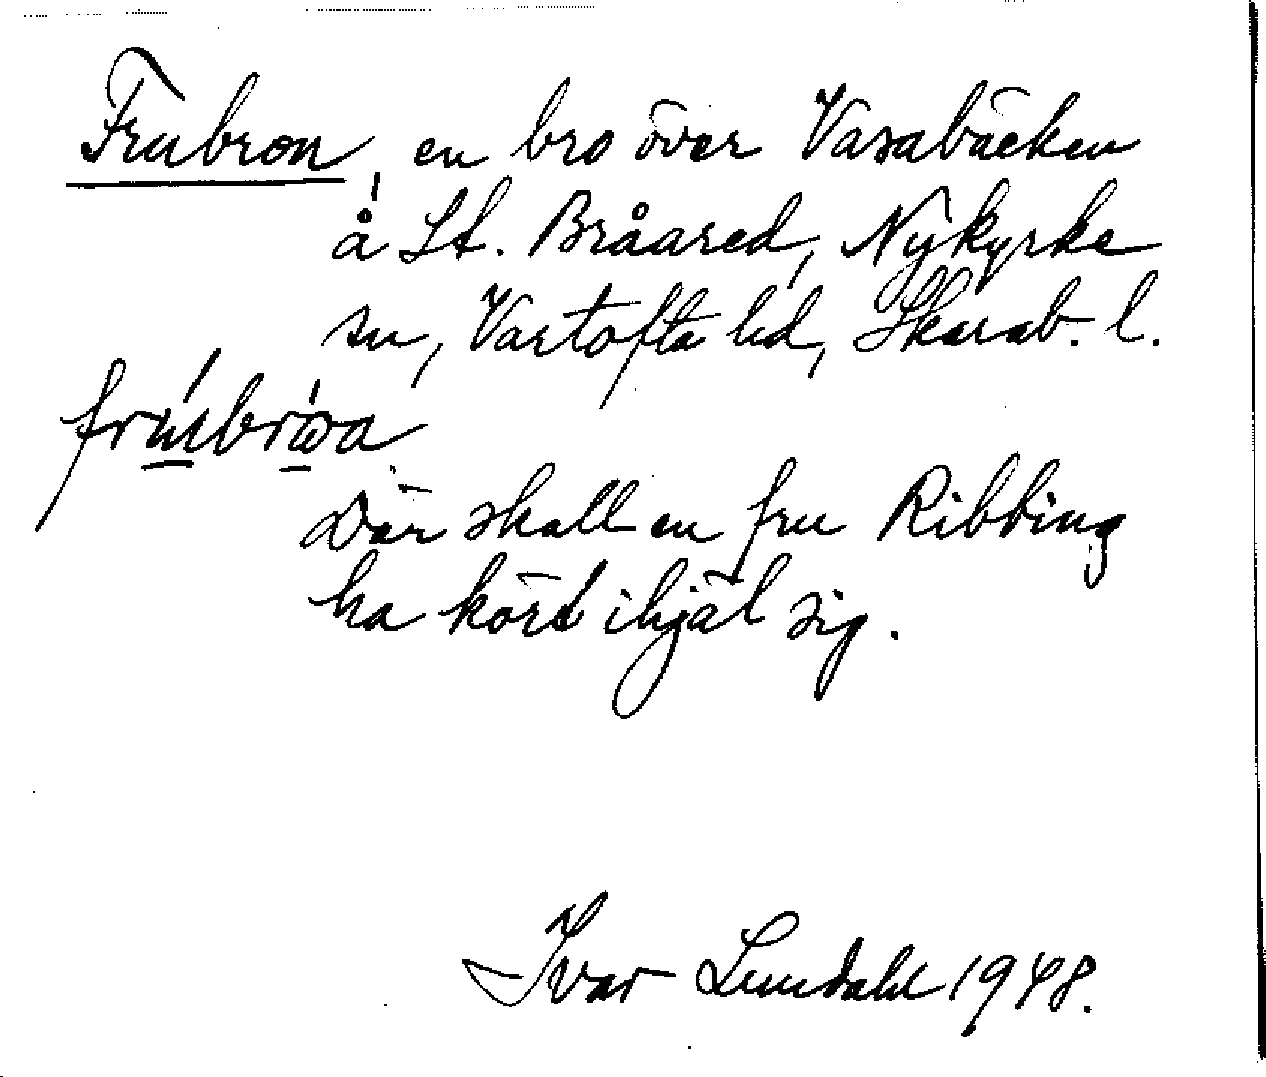 Frubron, en bro över Vasabäcken
å St. Bråared, Nykyrke
sn, Vartofta hd, Skarab. l.
Där skall en fru Ribbing
ha kört ihjäl sig.
Ivar Lundahl 1948.